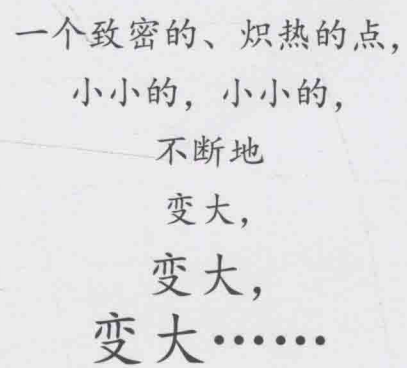 一个致密的、炽热的点，
小小的，小小的，
不断地
变大，
变大，
变大……